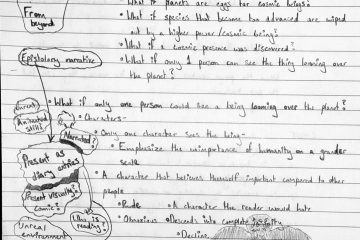 • What if planets are eggs for cosmic beings?
From beyond
• What if species that become too advanced are wiped
out by a higher power/cosmic being?
• What if a cosmic presence was discovered?
Epistolary narrative
• What if only 1 person can see the thing looming over
the planet?
Unreal
• What if only one person could see a being looming over the planet?
Animated stills?
• Characters -
Narrated?
- Only one character sees the being -
• Emphasize the unimportance of humanity on a grander
scale
Present as diary entries
• A character that believes themself important compared to other
people
Present visually?
comic?
• Rude
• A character the reader would hate
Who is reading?
• Obnoxious
• Descends into complete insanity
Unreal environment
• Decline